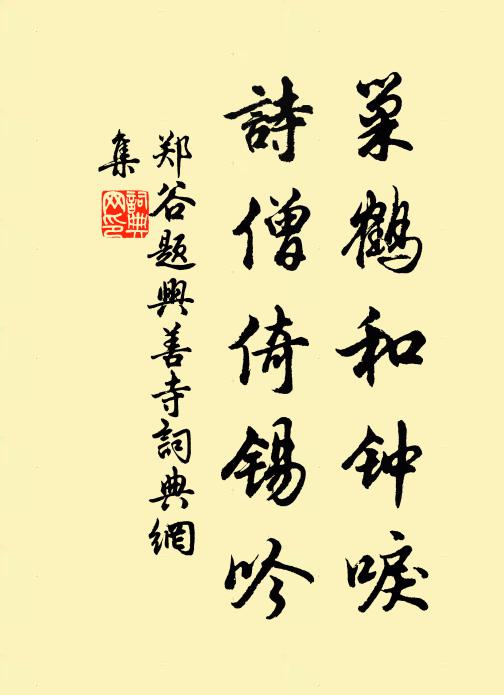 巢鶴和钟唳
詩僧倚锡吟
郑谷题興善寺詞典網
集
詞典
网印